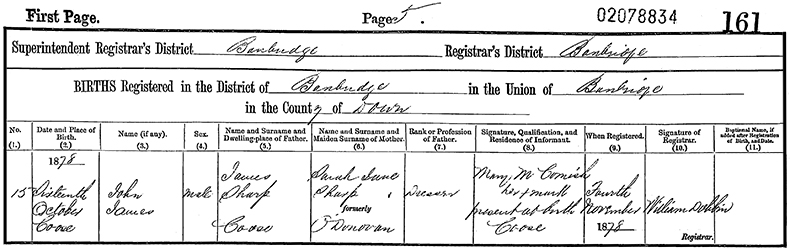 First Page. Page 5. 02078834 161
Superintendent Registrar's District Banbridge Registrar's District Banbridge
BIRTHS Registered in the District of Banbridge in the Union of Banbridge
in the County of Down
No. Date and Place of Birth. Name (if any). Sex. Name and Surname and Dwelling-place of Father. Name and Surname and Maiden Surname of Mother. Rank or Profession of Father. Signature, Qualification, and Residence of Informant. When Registered. Signature of Registrar. Baptismal Name, if added after Registration of Birth, and Date.
(1.) (2.) (3.) (4.) (5.) (6.) (7.) (8.) (9.) (10.) (11.)
1878 James Sarah Jane Mary McComish
15 Sixteenth John male Sharp Sharp Dresser her x mark Fourth
October James formerly present at birth November William Dobbin
Coose Coose O'Donovan Coose 1878 Registrar.